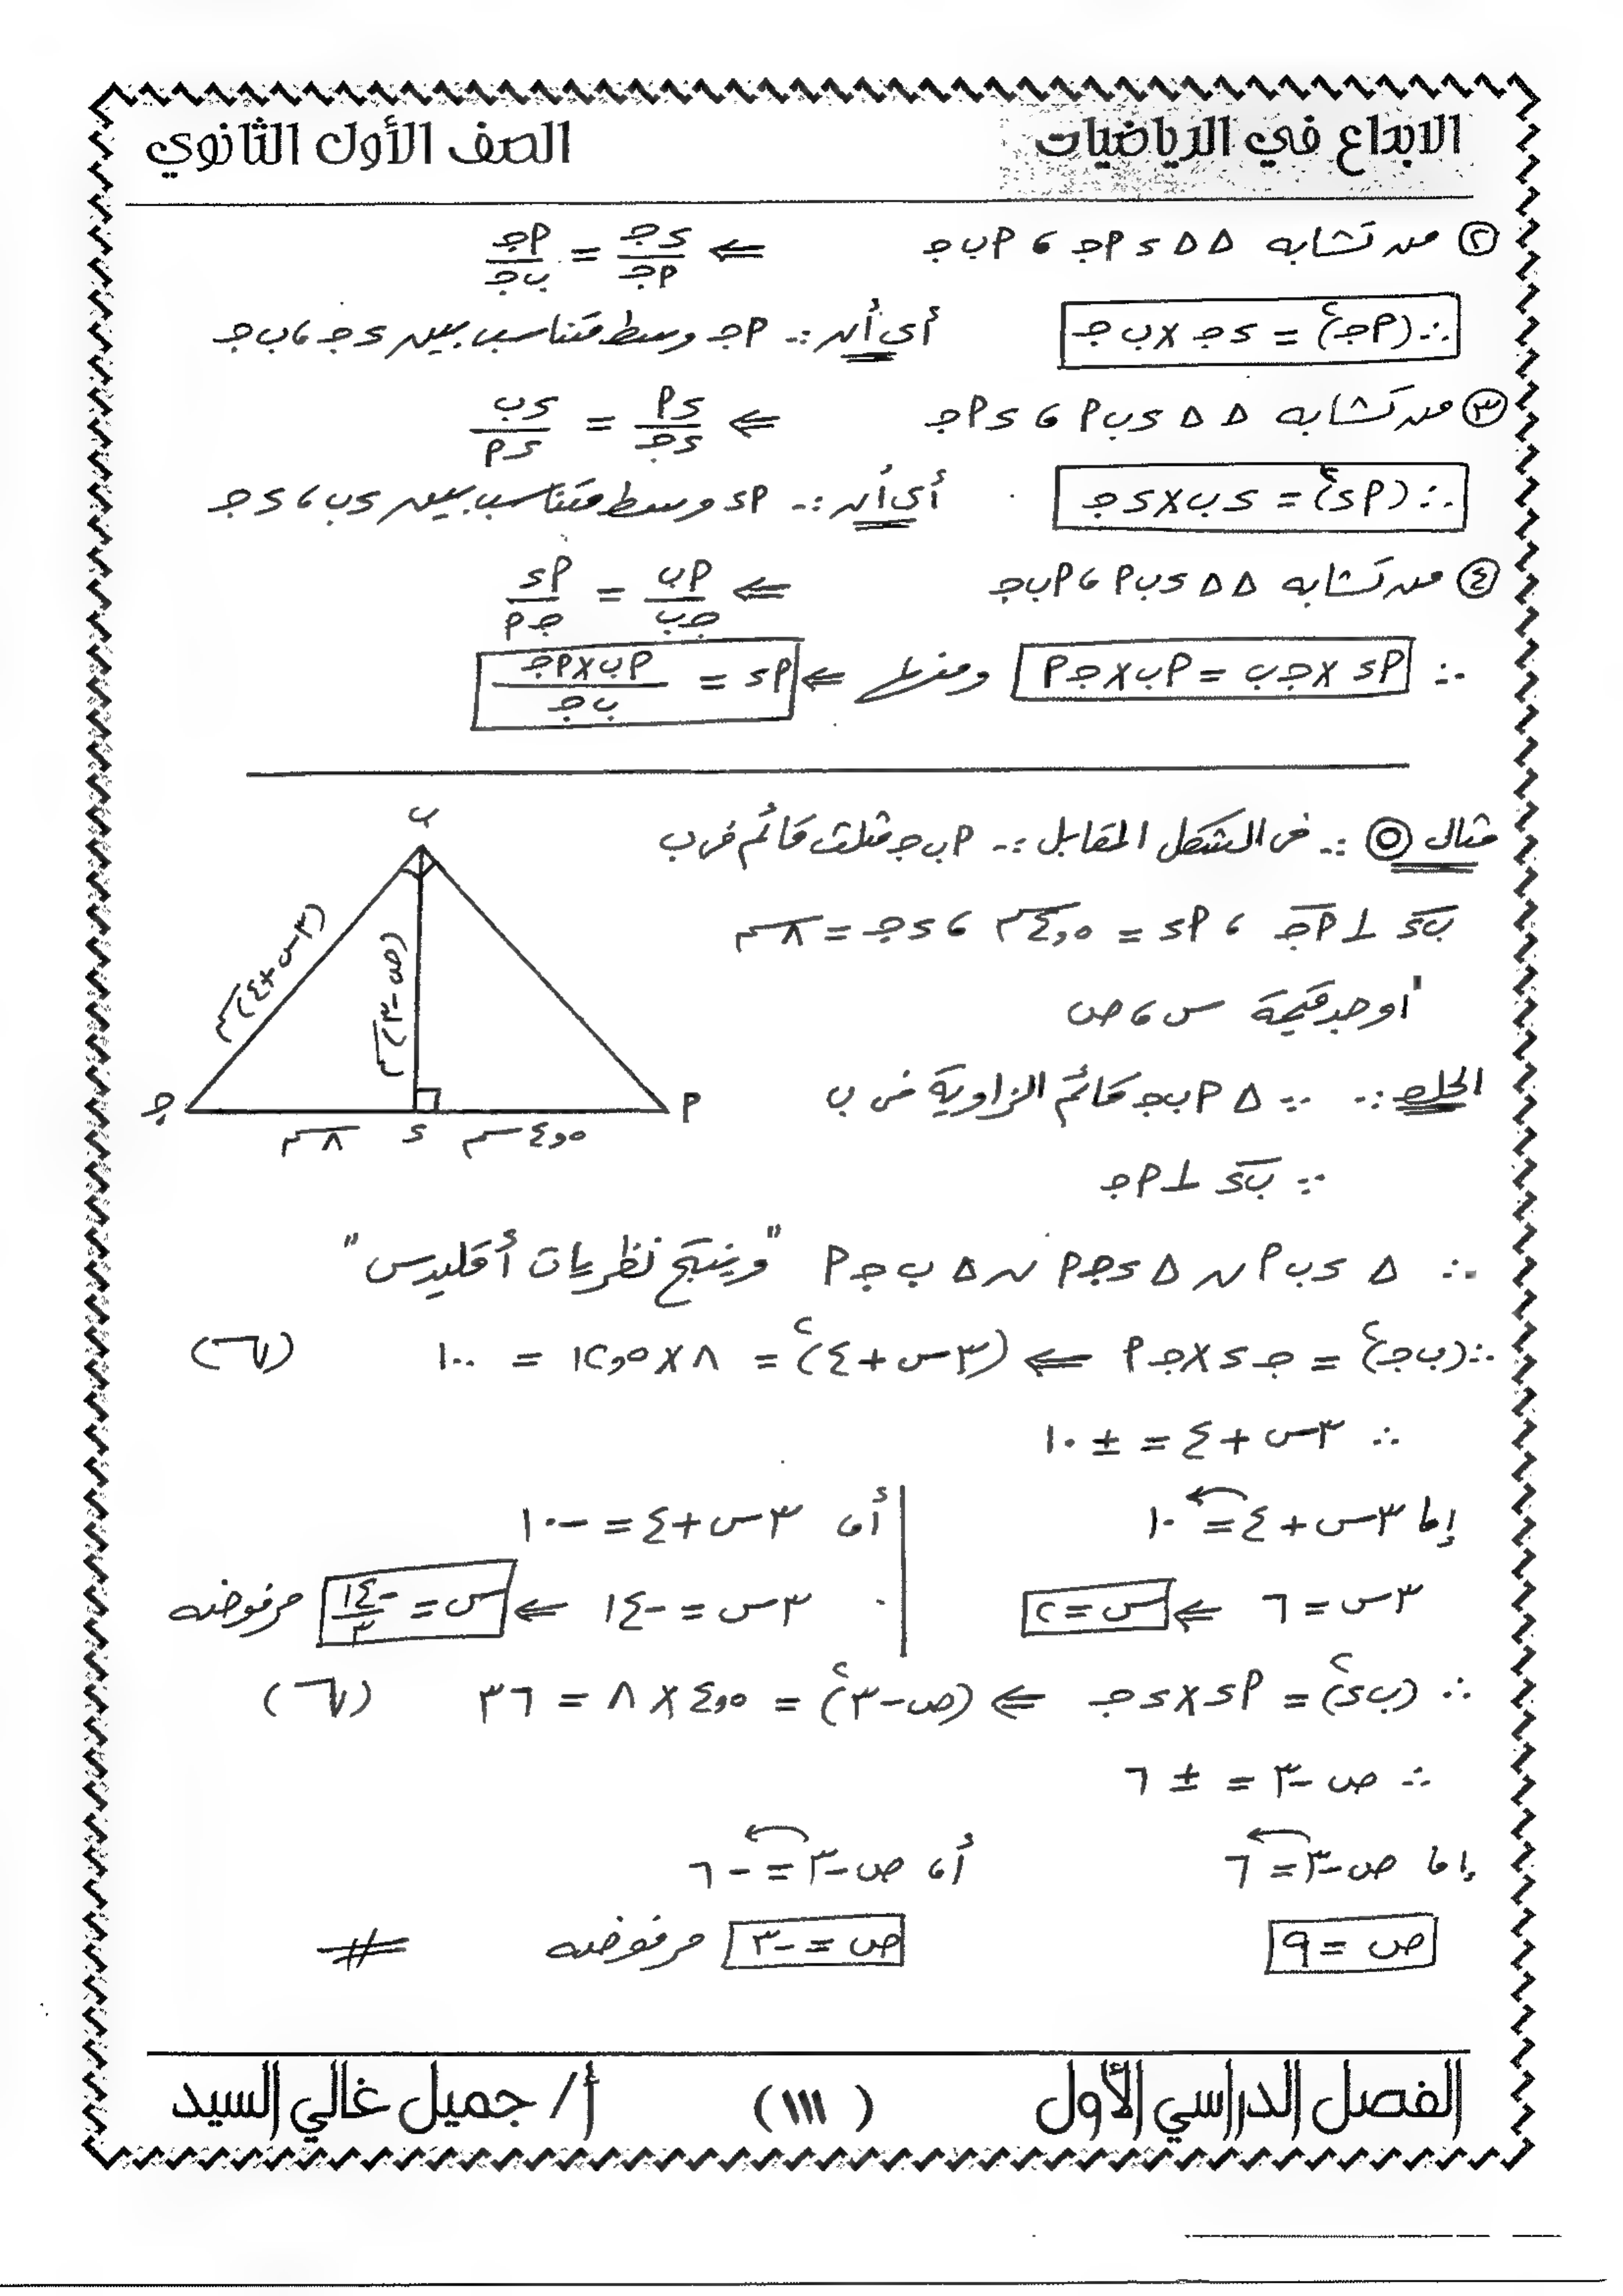 الابداع في الرياضيات
الصف الأول الثانوي
② من تشابه △△ ءأجـ ، أبجـ ⇐ ءجـ/أجـ = أجـ/بجـ
∴ (أجـ)² = ءجـ × بجـ أى أن :- أجـ وسط متناسب بين ءجـ ، بجـ
③ من تشابه △△ ءبأ ، ءأجـ ⇐ ءأ/ءجـ = ءب/ءأ
∴ (أء)² = ءب × ءجـ أى أن :- أء وسط متناسب بين ءب ، ءجـ
④ من تشابه △△ ءبأ ، أبجـ ⇐ أب/جـب = أء/جـأ
∴ أء × جـب = أب × جـأ ومنها ⇐ أء = أب × أجـ/بجـ
مثال ⑤ :- فى الشكل المقابل :- أبجـ مثلث قائم فى ب
بء ⊥ أجـ ، أء = ٤,٥ سم ، ءجـ = ٨ سم
أوجد قيمة س ، ص
ب
(٣س + ٤) سم
(ص - ٣) سم
جـ
أ
٨ سم
ء
٤,٥ سم
الحل :- ∵ △ أبجـ قائم الزاوية فى ب
∵ بء ⊥ أجـ
∴ △ ءبأ ~ △ ءجـأ ~ △ بجـأ "وينتج نظريات أقليدس"
∴ (بجـ)² = جـء × جـأ ⇐ (٣س + ٤)² = ٨ × ١٢,٥ = ١٠٠ (√)
∴ ٣س + ٤ = ± ١٠
إما ٣س + ٤ = ١٠
أ، ٣س + ٤ = -١٠
٣س = ٦ ⇐ س = ٢
٣س = -١٤ ⇐ س = -١٤/٣ مرفوضه
∴ (بء)² = أء × ءجـ ⇐ (ص - ٣)² = ٤,٥ × ٨ = ٣٦ (√)
∴ ص - ٣ = ± ٦
إما ص - ٣ = ٦
أ، ص - ٣ = - ٦
ص = ٩
ص = -٣ مرفوضه #
الفصل الدراسي الأول
( ١١١ )
أ/ جميل غالي السيد